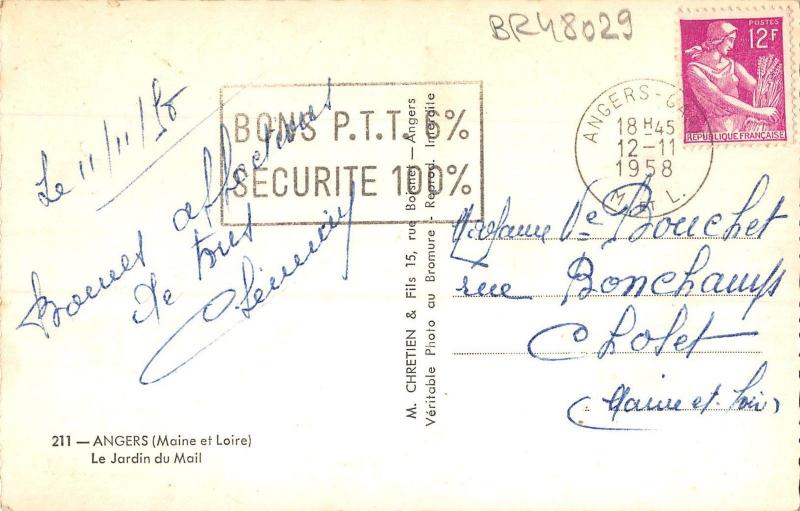 BR48029
POSTES
12F
REPUBLIQUE FRANÇAISE
ANGERS-G
18 H 45
12-11
1958
M. ET L.
BONS P.T.T. 6%
SÉCURITE 100%
Le 11/11/58
Bonnes affections
de tous
M. CHRETIEN & Fils 15, rue Boisnet — Angers
Véritable Photo au Bromure - Reprod. Interdite
Madame Ve Bouchet
rue Bonchamps
Cholet
(Maine et Loire)
211 — ANGERS (Maine et Loire)
Le Jardin du Mail